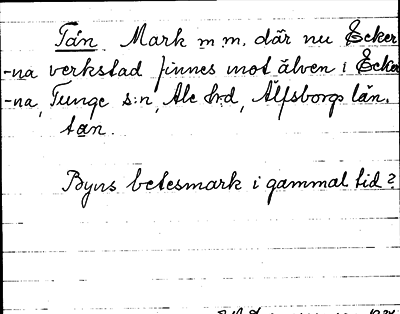 Tån Mark m.m. där nu Ecker
-na verkstad finnes mot älven i Ecker
-na, Tunge s:n, Ale h:d, Älfsborgs län.
tan.
Byns betesmark i gammal tid?